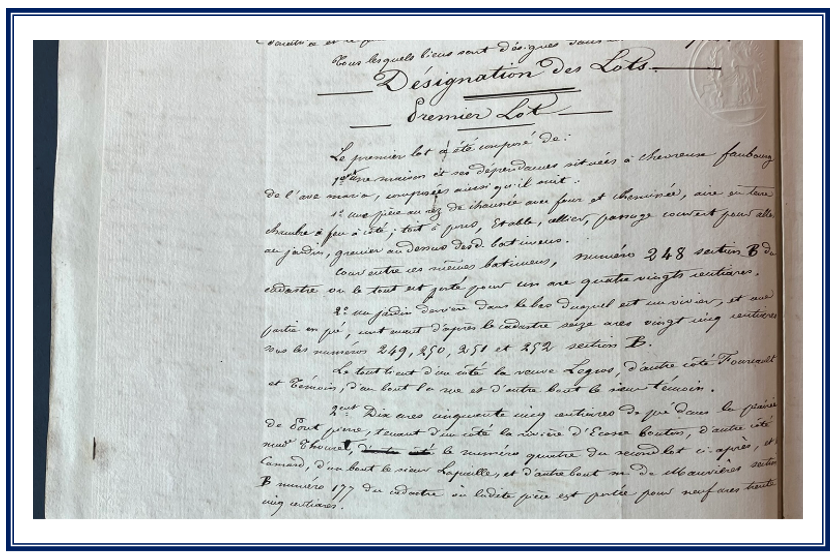 Tous lesquels biens sont désignés
Désignation des Lots.
Premier Lot
Le premier lot a été composé de :
1ent une maison et ses dépendances situées à chevreuse faubourg
de l'ave maria, composées ainsi qu'il suit :
1° une pièce au rez de chaussée avec four et cheminée, aire en terre
chambre à feu à côté ; toit à porcs, étable, cellier, passage couvert pour aller
au jardin, grenier au dessus desd. batimens.
cour entre ces mêmes batimens, numéro 248 section B du
cadastre ou le tout est porté pour un are quatre vingts centiares.
2° un jardin derrière dans le bas duquel est un vivier, et une
partie en pré, contenant d'après le cadastre seize ares vingt cinq centiares
sous les numéros 249, 250, 251 et 252 section B.
Le tout tient d'un côté la veuve Legros, d'autre côté
et Témoin, d'un bout la rue et d'autre bout le sieur témoin.
2ent Dix ares cinquante cinq centiares de pré dans la prairie
de Pont pierre, tenant d'un côté la rivière d'Ecosse boutons, d'autre côté
Thouret, le numéro quatre du second lot ci-après, et
d'un bout le sieur Lapuille, et d'autre bout m. de Mauvières section
B numéro 177 du cadastre ou ladite pièce est portée pour neuf ares trente
cinq centiares.